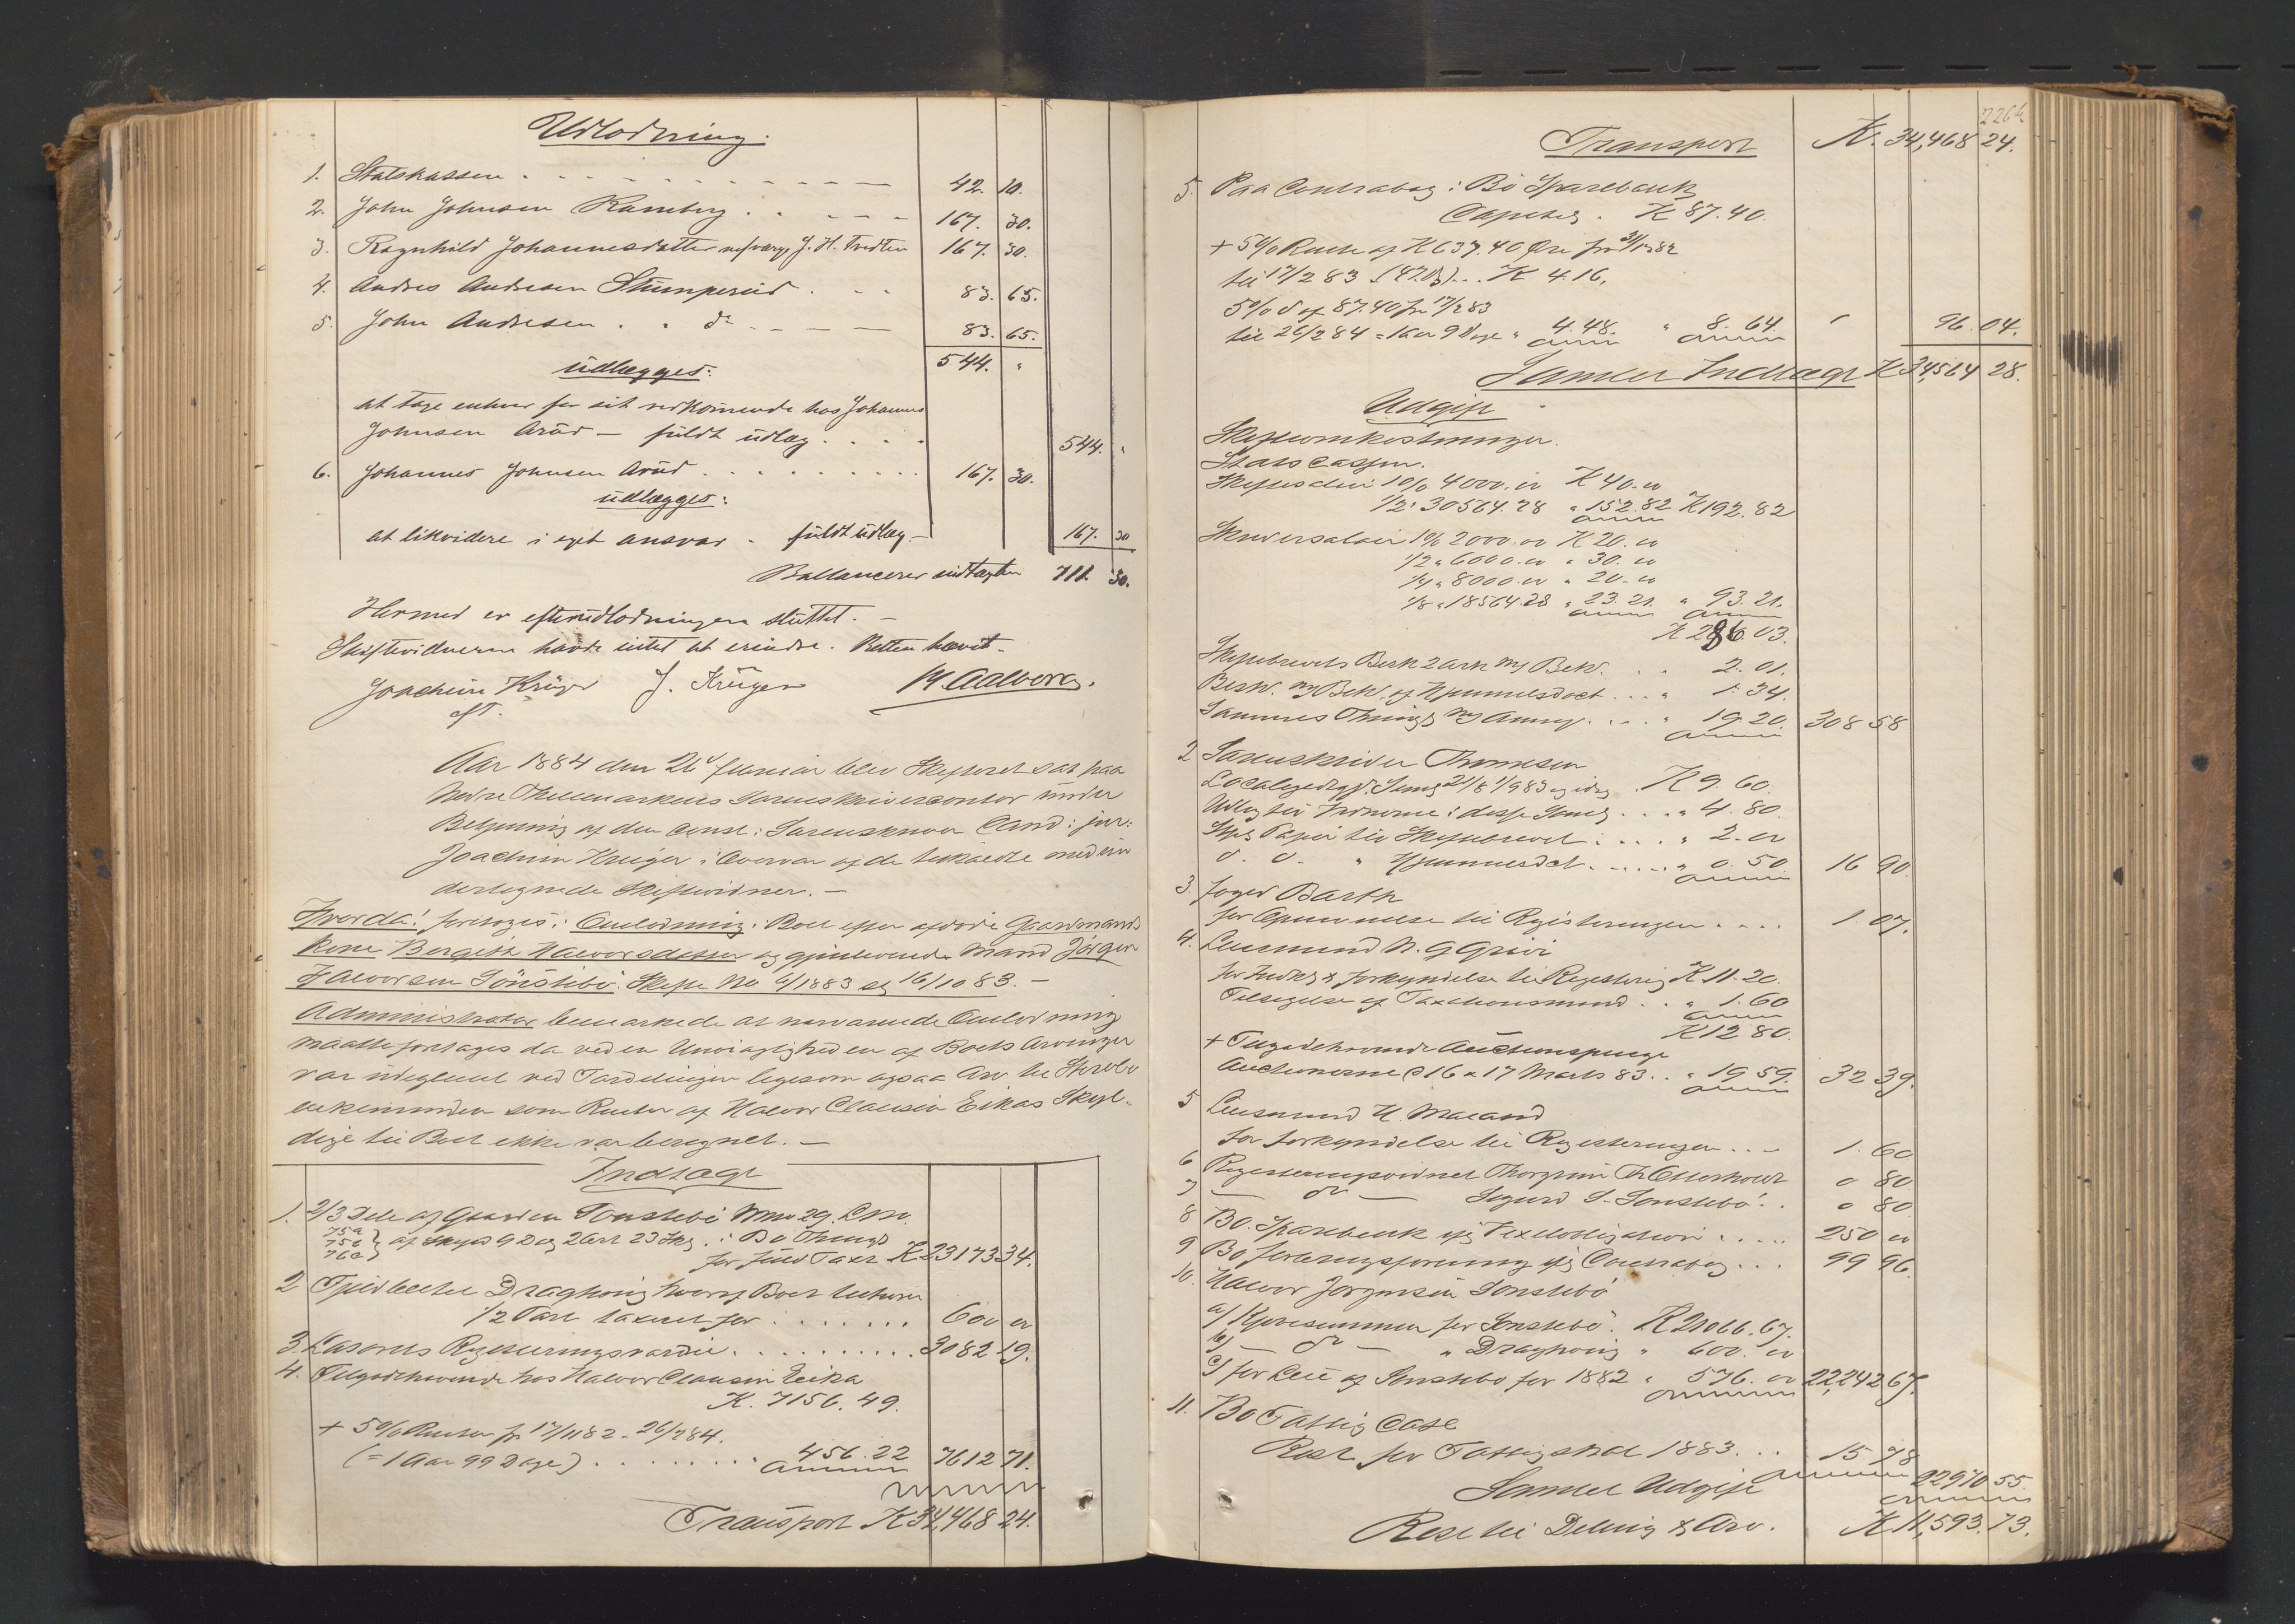 Udlodning.
1. Statskassen . . . 42. 10.
2. John Johnsen Ramberg . . . 167. 30.
3. Ragnhild Johannesdatter v/værge J. H. Tvedten 167. 30.
4. Andres Andresen Stumperud . . . 83. 65.
5. John Andresen . . do . . . 83. 65.
544. "
udlægges:
at tage enhver for sit vedkommende hos Johannes
Johnsen Arud – fuldt udlæg . . . 544. "
6. Johannes Johnsen Arud . . . 167. 30.
udlægges:
at likvidere i eget ansvar – fuldt udlæg – 167. 30
Ballancerer indtægten 711. 30.
Hermed er efterudlodningen sluttet. –
Skiftevidnerne havde intet at erindre. Retten hævet.
Joachim Krüger J. Krüger M. Aalborg.
cst.
Aar 1884 den 26 Februar blev Skifteret sat paa
Nedre Thelemarkens Sorenskrivercontor under
Betjening af den const: Sorenskriver Cand: jur:
Joachim Krüger i Overvær af de tilkaldte med un
dertegnede Skiftevidner. –
Hvorda! foretoges: Omlodning i Boet efter afdøde Gaardmands
kone Bergith Halvorsdatter og gjenlevende Mand Jørgen
Halvorsen Sönstebö. Skifte No 6/1883 og 16/10 83. –
Administrator bemærkede at nærværende Omlodning
maatte foretages da ved en Unøiagtighed en af Boets Arvinger
var udeglemt ved Fordelingen ligesom ogsaa Arv til Stervbo
enkemanden som Renter af Halvor Clausen Eikas Skyl-
dige til Boet ikke var beregnet. –
Indtægt
1. 2/3 Dele af Gaarden Sonstebö Mno 29. Lno.
75a 75b 76a } af Skyld 9 Dlr 2 Ort 23 Skg. i Bö Thingl
for fuld Taxt K 23173 34.
2 Spildbeltet Draghoug hvoraf Boet tilhører
1/2 Part taxeret for . . . 600 00
3. Løsørets Registreringsværdie . . . 3082 19.
4. Tilgodehavende hos Halvor Clausen Eika
K. 7156. 49.
+ 5% Renter fr 17/11 82 – 26/2 84.
(= 1 Aar 99 Dage) . . . 456. 22 7612 71.
Transport K 34,468 24.
226b
Transport K. 34,468 24.
5. Paa Contrabog i Bö Sparebank
Capital . K 87. 40.
+ 5% Rente af K 637. 40 Øre fra 31/12 82
til 17/2 83 (47 D) . . K 4. 16,
5% d af 87. 40 fra 17/2 83
til 26/2 84 = 1 Aar 9 Dage " 4. 48. " 8. 64. " 96. 04.
Samlet Indtægt K 34,564 28.
Udgift
Skifteomkostninger.
Stats Cassen.
Skifteafgift 1% 4000. 00 K 40. 00
1/2 " 30564. 28 " 152. 82 K 192. 82
Skriversalair 1% 2000. 00 K 20. 00
1/2 " 6000. 00 " 30. 00
1/4 " 8000. 00 " 20. 00
1/8 " 18564. 28 " 23. 21. " 93. 21.
K 286. 03.
Skiftebrevets Besk 2 ark m/ Bekr. . . " 2. 01.
Beskr. m/ Bekr. af Hjemmelsdoct. . . " 1. 34.
Sammes Thingl m/ Anm. . . . " 19. 20. 308 58
2 Sorenskriver Thomesen
Localgodtgj. Samg 21/8 1/9 83 og idag . K 9. 60.
Udlæg til Vidnerne i disse Samg . . . " 4. 80.
Stpl Papir til Skiftebrevet . . . " 2. 00
d. d. " Hjemmelsdct. . . . " 0. 50 16 90.
3. Foged Barth
for Opnævnelse til Registreringen . . . 1. 07.
4. Lensmand N. G. Grivi
for Indk & Forkyndelse til Registrerig K 11. 20.
Tilsigelse af Taxtionsmænd . . " 1. 60
K 12 80.
+ Tilgodehavende Auctionspenge
Auctionerne @ 16 & 17 Marts 83. . " 19 59. 32 39.
5 Lensmand H. Maland
for Forkyndelse til Registreringen . . . 1. 60
6 Registreringsvidnet Thorgrim Th. Otterholt 0 80
7 — do — Sigurd S. Sonstebö. . 0 80
8 Bö. Sparebank iflg Vexelobligation . . . 250 00
9 Bö Forbrugsforening iflg Contrabog . . . 99 96.
10. Halvor Jörgensen Sonstebö
a/ Kjøbesummen for Sonstebö. K 21066. 67.
b/ — do — " Draghoug " 600. 00
c/ for Leie af Sonstebö for 1882 " 576. 00 22,242 67.
11. Bö Fattig Casse
Rest for Fattigskat 1883. . . 15 78
Samlet Udgift 22970 55.
Rest til Deling & Arv. K 11,593. 73.